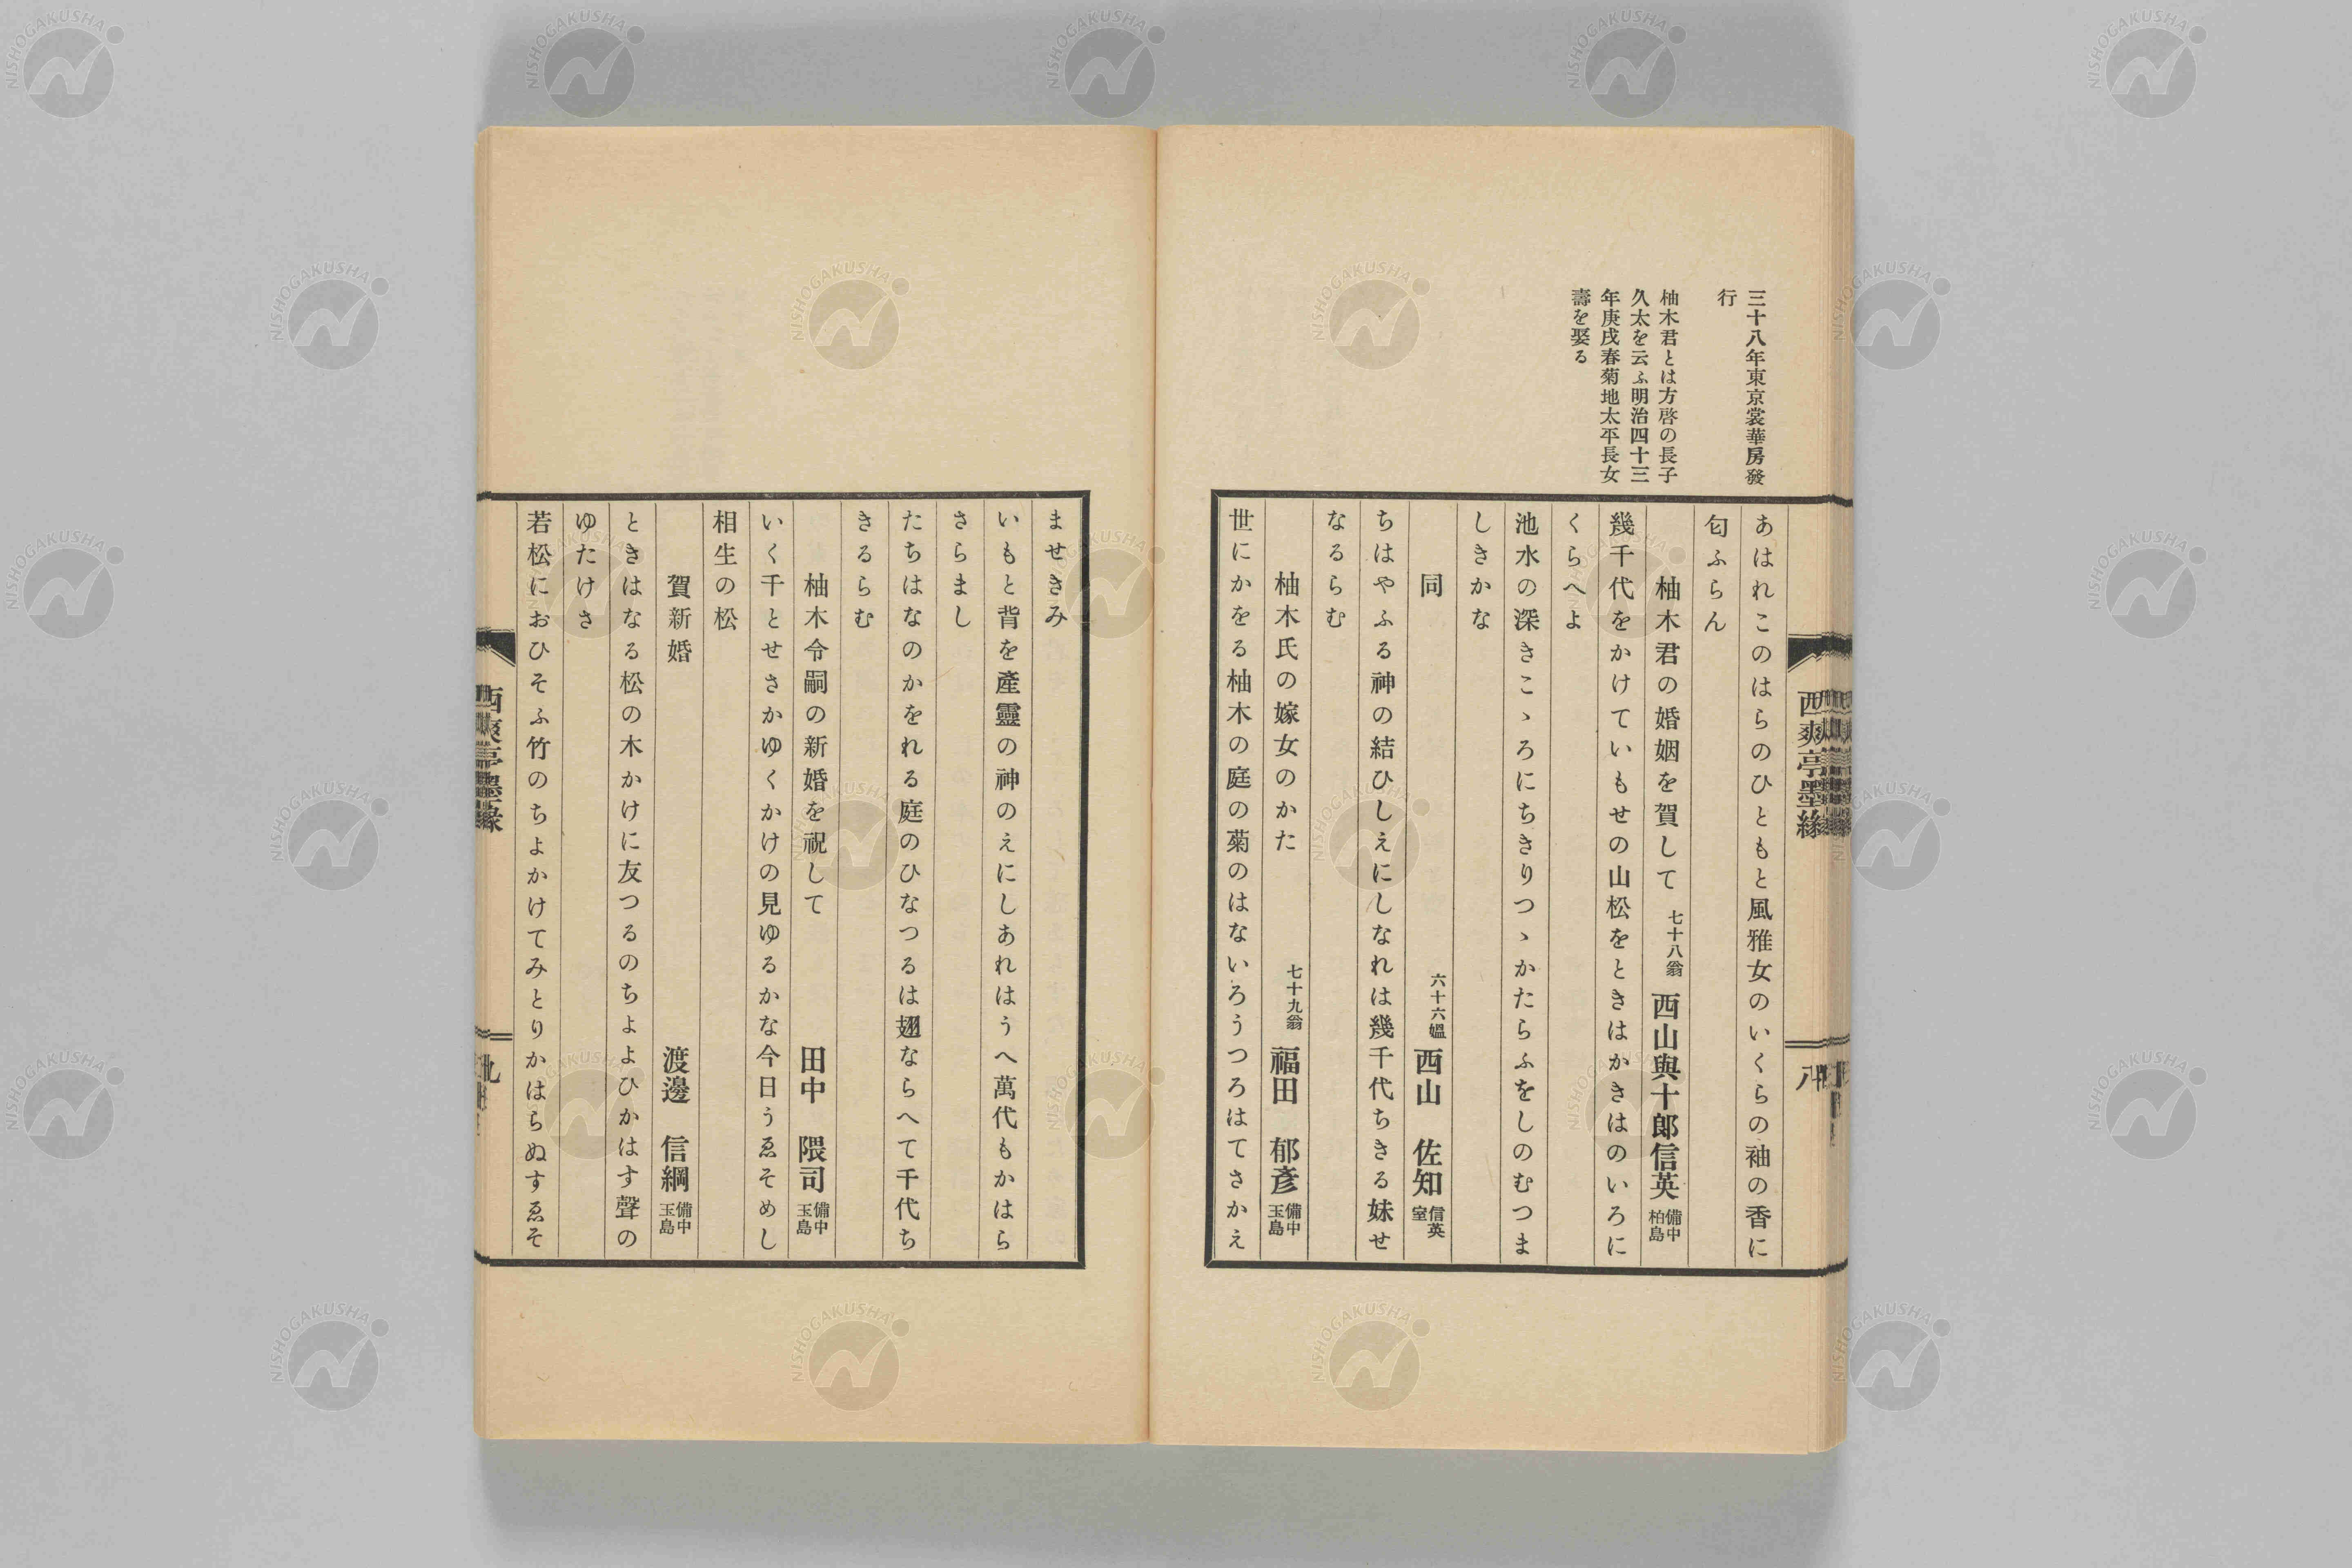 三十八年東京裳華房發
行
柚木君とは方啓の長子
久太を云ふ明治四十三
年庚戌春菊地太平長女
壽を娶る
西爽亭墨緣
八
あはれこのはらのひともと風雅女のいくらの袖の香に
匂ふらん
柚木君の婚姻を賀して 七十八翁 西山與十郎信英 備中柏島
幾千代をかけていもせの山松をときはかきはのいろに
くらへよ
池水の深きこゝろにちきりつゝかたらふをしのむつま
しきかな
同 六十六媼 西山 佐知 信英室
ちはやふる神の結ひしえにしなれは幾千代ちきる妹せ
なるらむ
柚木氏の嫁女のかた 七十九翁 福田 郁彥 備中玉島
世にかをる柚木の庭の菊のはないろうつろはてさかえ
ませきみ
いもと背を產靈の神のえにしあれはうへ萬代もかはら
さらまし
たちはなのかをれる庭のひなつるは翅ならへて千代ち
きるらむ
柚木令嗣の新婚を祝して 田中 隈司 備中玉島
いく千とせさかゆくかけの見ゆるかな今日うゑそめし
相生の松
賀新婚 渡邊 信綱 備中玉島
ときはなる松の木かけに友つるのちよよひかはす聲の
ゆたけさ
若松におひそふ竹のちよかけてみとりかはらぬすゑそ
西爽亭墨緣
九
NISHOGAKUSHA